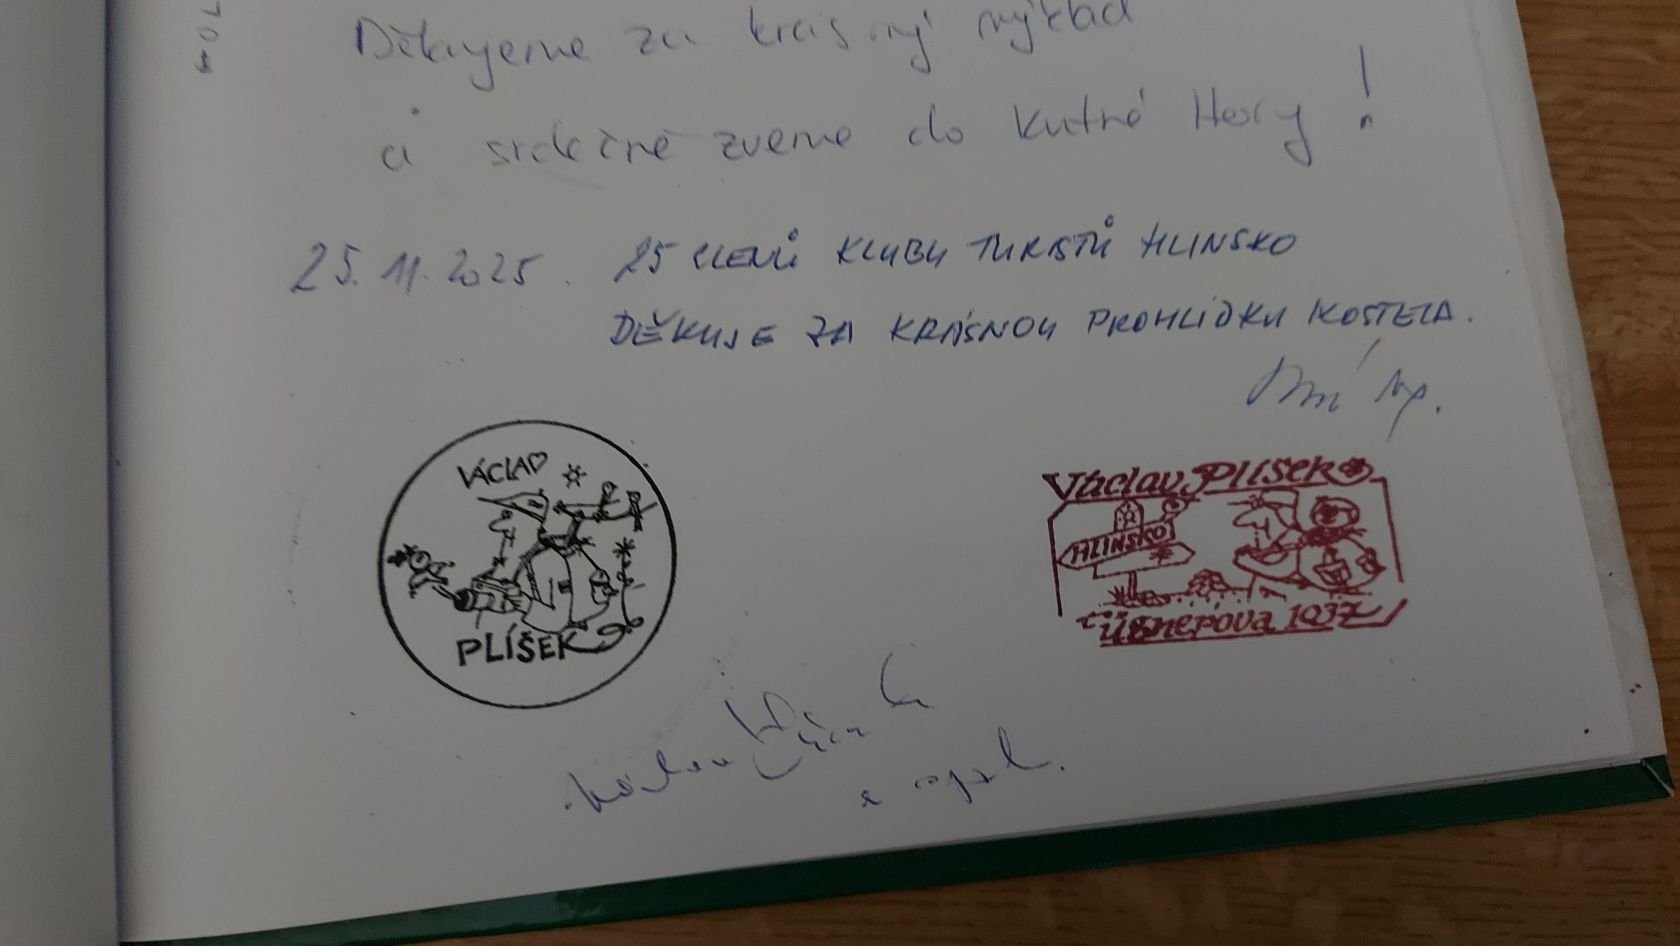 Děkujeme za krásný výklad
a srdečně zveme do Kutné Hory!
25.11.2025. 25 členů KLUBU TURISTŮ HLINSKO
DĚKUJE ZA KRÁSNOU PROHLÍDKU KOSTELA.
VÁCLAV
PLÍŠEK
Václav Plíšek
HLINSKO
1037
a spol.